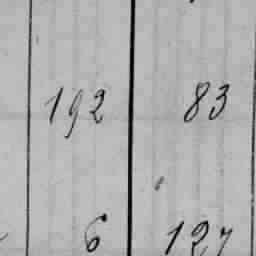 192 83
6 127